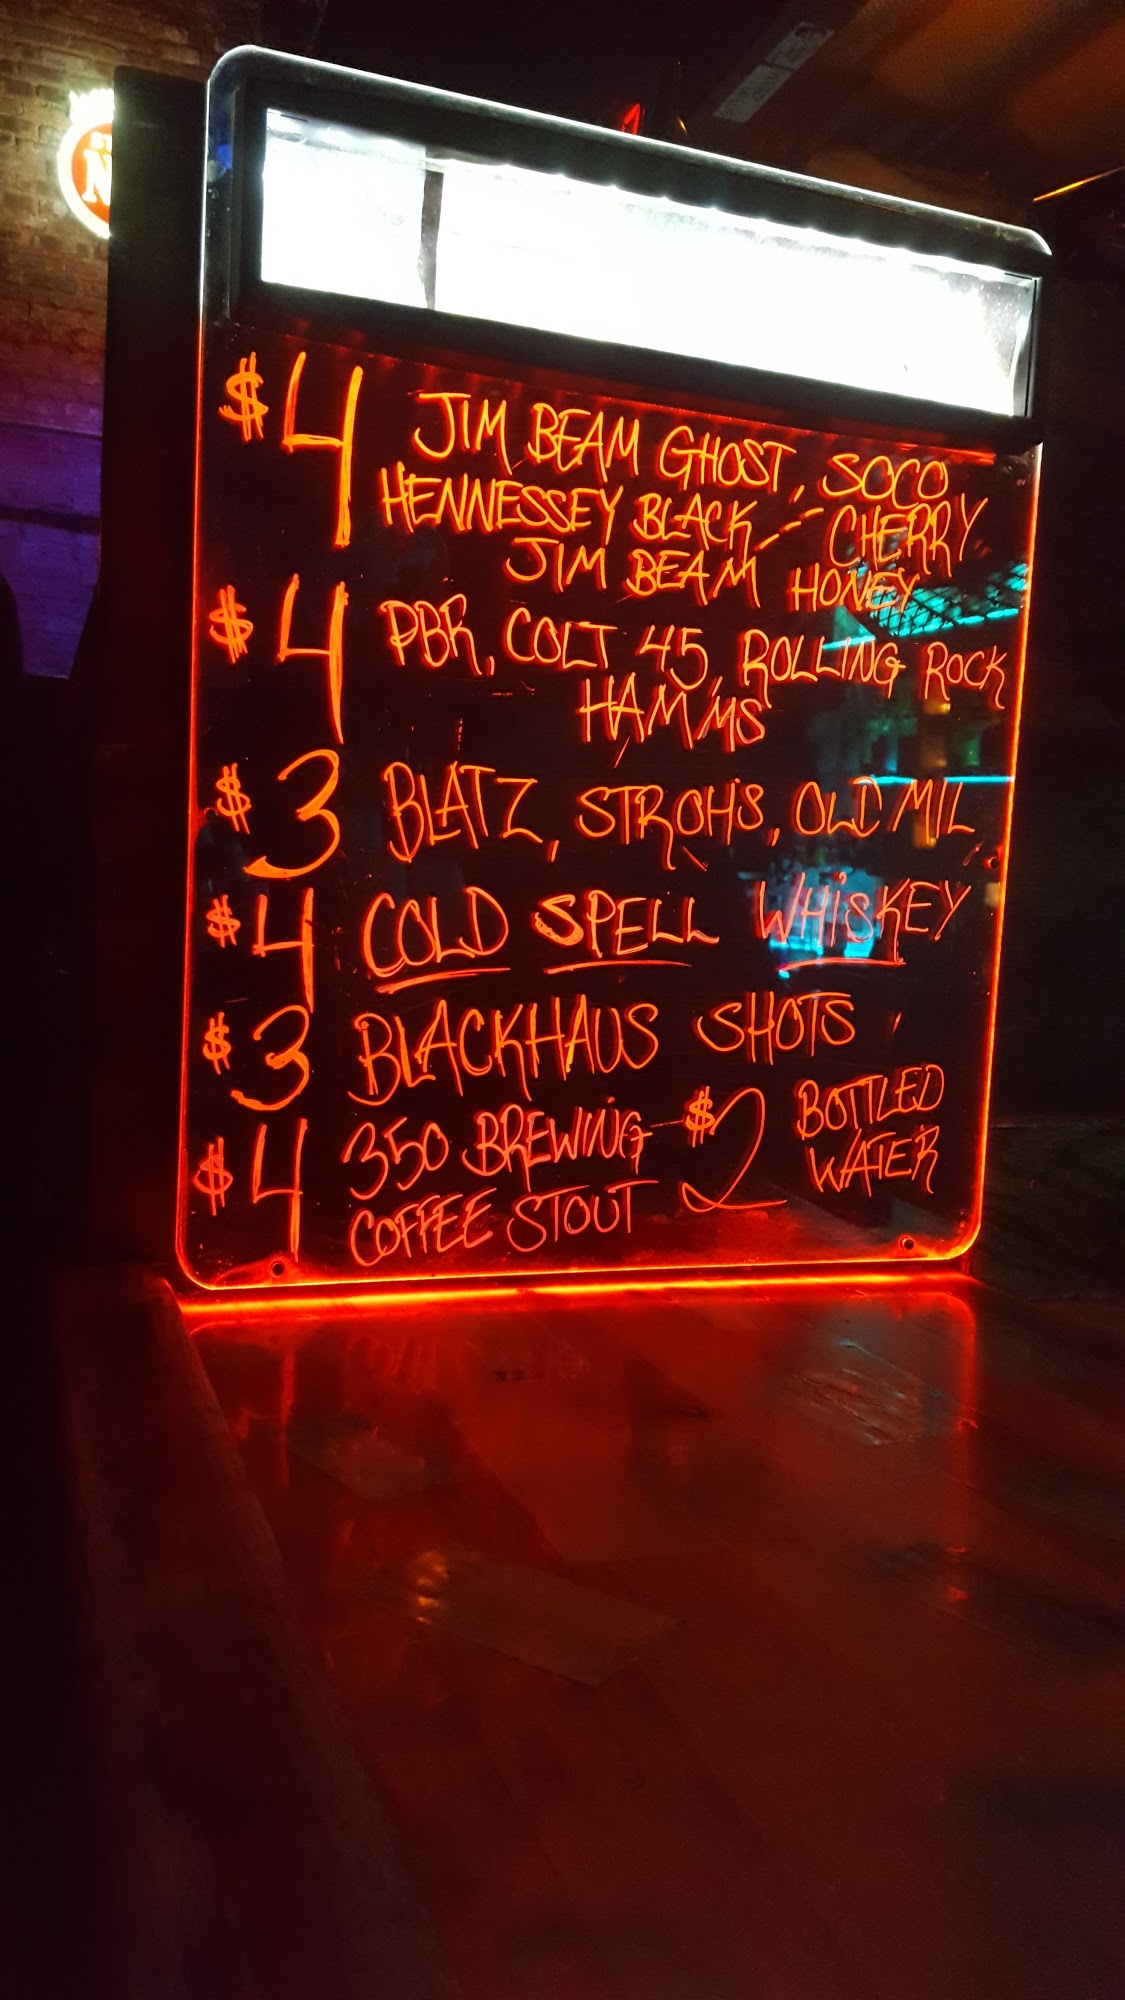 $4 JIM BEAM GHOST, SOCO
HENNESSEY BLACK -- CHERRY
JIM BEAM HONEY
$4 PBR, COLT 45, ROLLING ROCK
HAMMS
$3 BLATZ, STROHS, OLD MIL
$4 COLD SPELL WHISKEY
$3 BLACKHAUS SHOTS
$4 350 BREWING $2 BOTTLED
COFFEE STOUT WATER